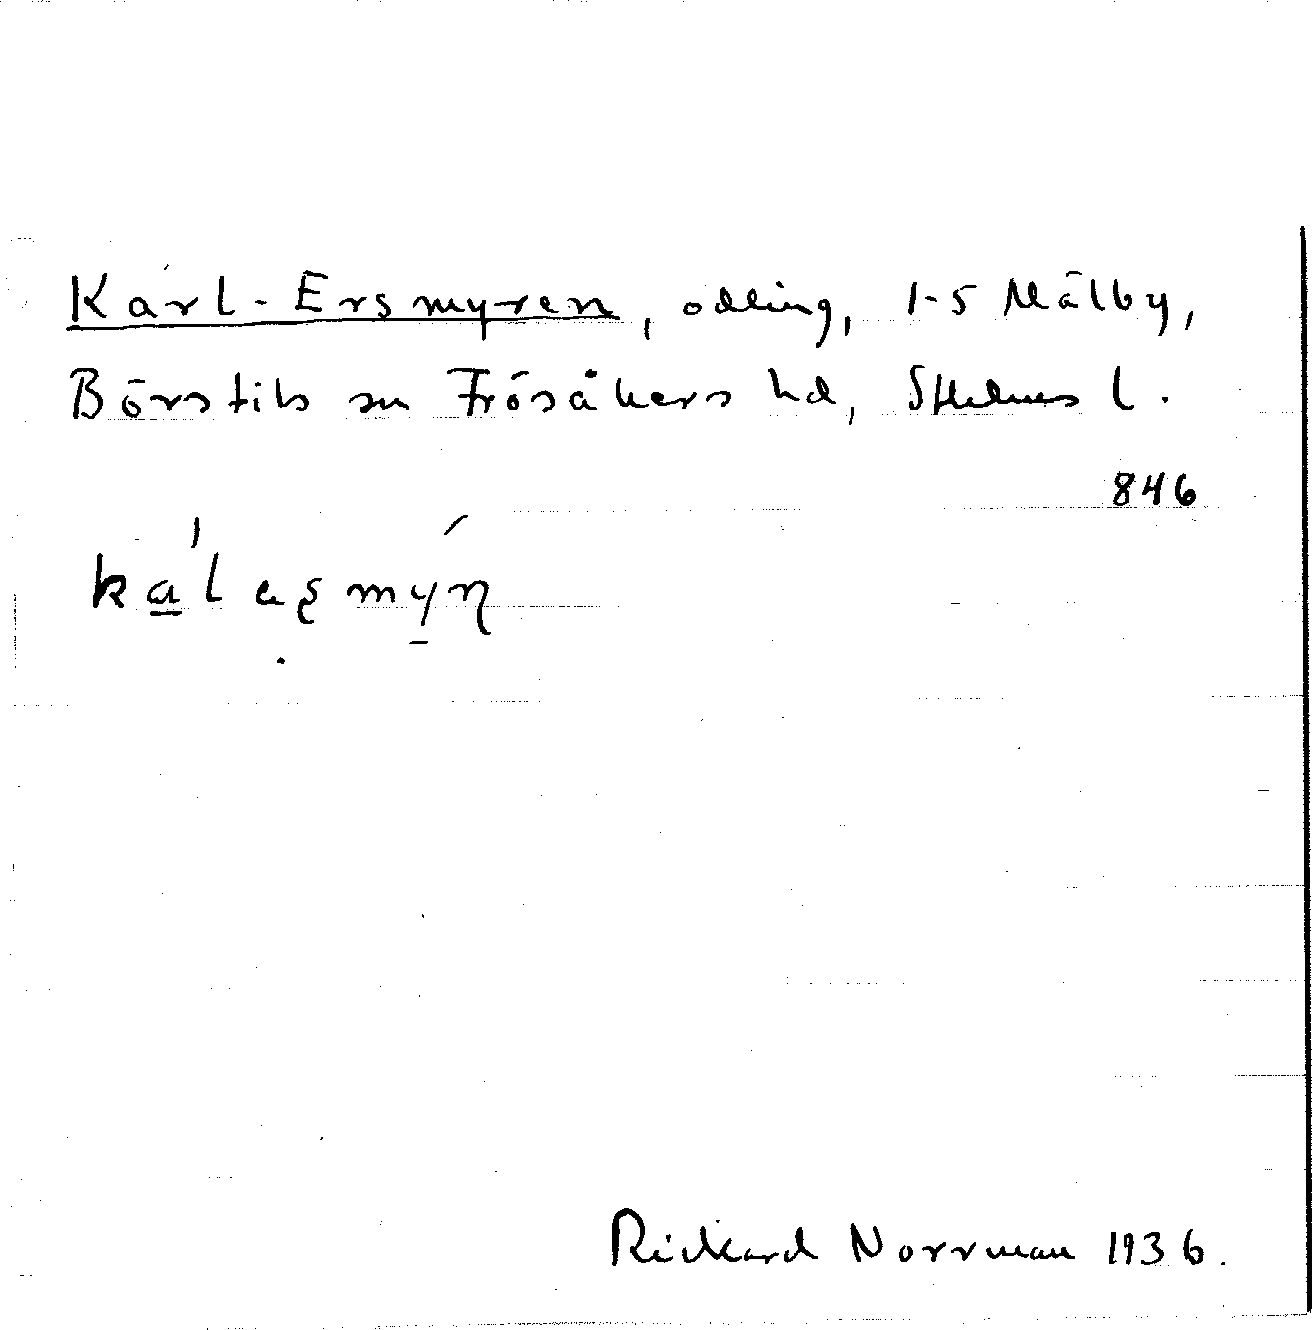 Karl-Ersmyren, odling, 1-5 Mälby,
Börstils sn Frösåkers hd, Sthlms l.
846
Rickard Norrman 1936.